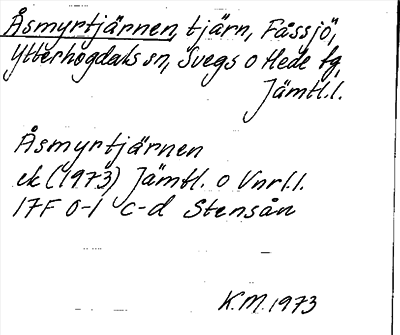 Åsmyrtjärnen, tjärn, Fåssjö,
Ytterhogdals sn, Svegs o Hede tg,
Jämtl.l.
Åsmyrtjärnen
ek (1973) Jämtl. o Vnrl.l.
17F 0-1 c-d Stensån
K.M.1973